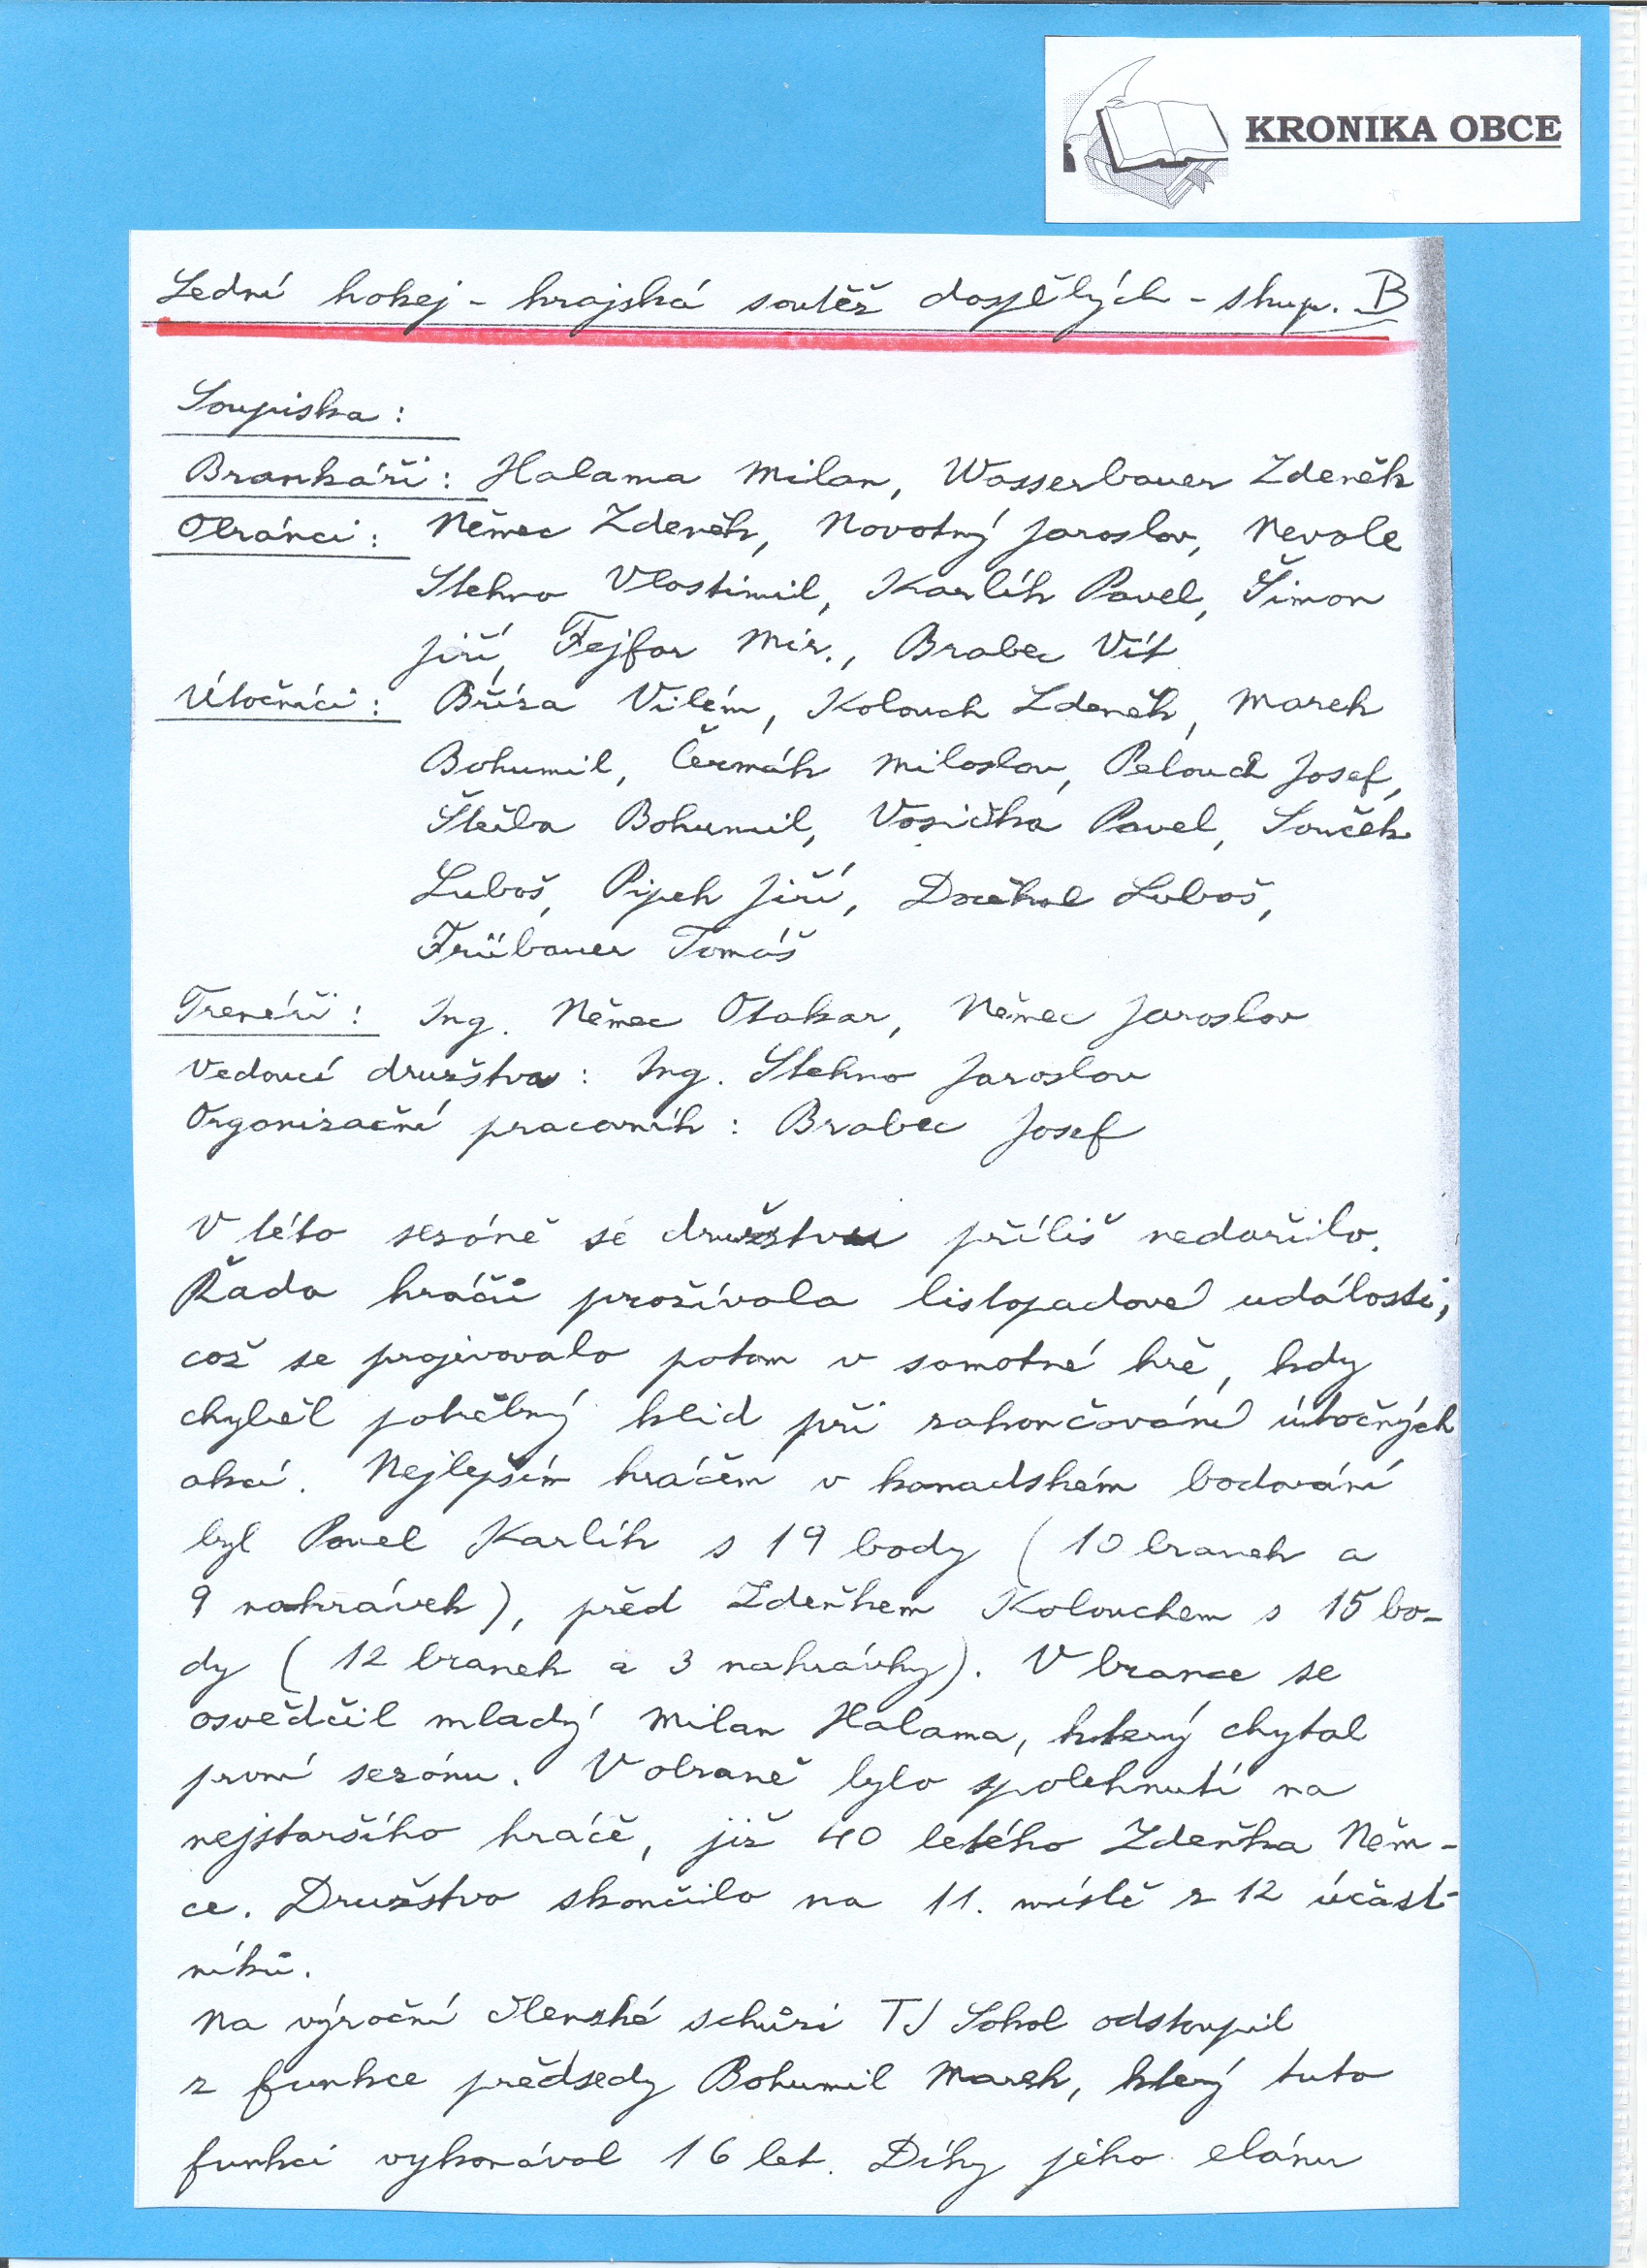 KRONIKA OBCE
Lední hokej - krajská soutěž dospělých - skup. B
Soupiska:
Brankáři: Halama Milan, Wasserbauer Zdeněk
Obránci: Němec Zdeněk, Novotný Jaroslav, Nevole
Stehno Vlastimil, Karlík Pavel, Šimon
Jiří, Fejfar Mir., Brabec Vít
Útočníci: Bříza Vilém, Kolouch Zdeněk, Marek
Bohumil, Čermák Miloslav, Pelouch Josef,
Bohumil, Vosička Pavel, Souček
Luboš, Pipek Jiří, Luboš,
Frübauer Tomáš
Trenéři: Ing. Němec Otakar, Němec Jaroslav
Vedoucí družstva: Ing. Stehno Jaroslav
Organizační pracovník: Brabec Josef
V této sezóně se družstvu příliš nedařilo.
Řada hráčů prožívala listopadové události,
což se projevovalo potom v samotné hře, kdy
chyběl potřebný klid při zakončování útočných
akcí. Nejlepším hráčem v kanadském bodování
byl Pavel Karlík s 19 body (10 branek a
9 nahrávek), před Zdeňkem Kolouchem s 15 bo-
dy (12 branek a 3 nahrávky). V brance se
osvědčil mladý Milan Halama, který chytal
první sezónu. V obraně bylo spolehnutí na
nejstaršího hráče, již 40 letého Zdeňka Něm-
ce. Družstvo skončilo na 11. místě z 12 účast-
níků.
Na výroční členské schůzi TJ Sokol odstoupil
z funkce předsedy Bohumil Marek, který tuto
funkci vykonával 16 let. Díky jeho elánu